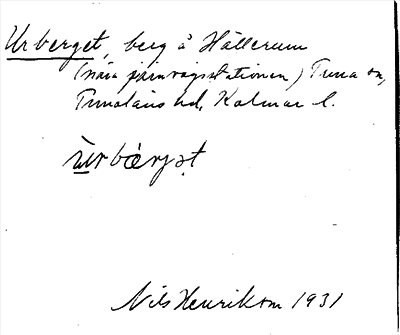 Urberget, berg å Hällerum
(nära järnvägsstationen) Tuna sn,
Tunaläns hd, Kalmar l.
ùrbærjət
Nils Henrikson 1931